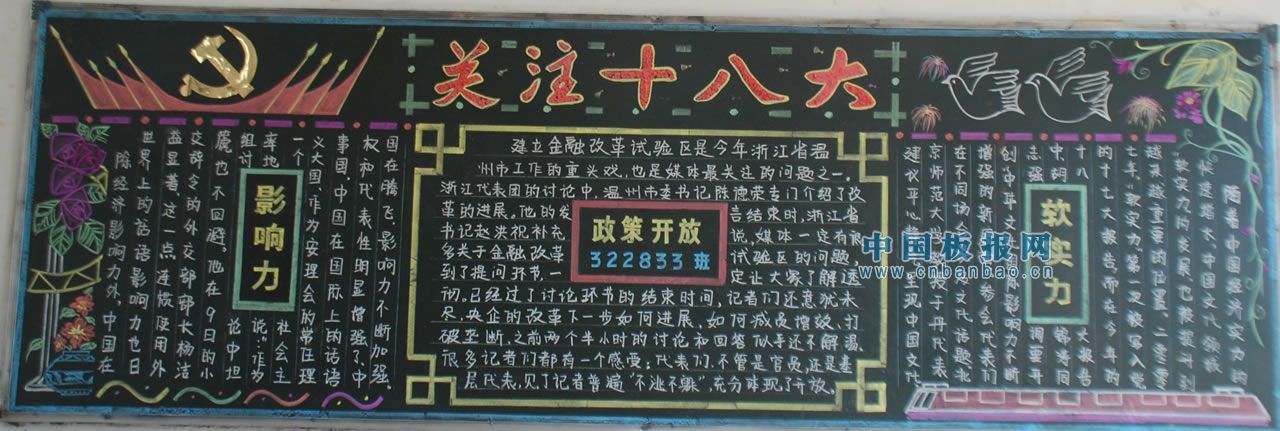 关注十八大
影响力
国在腾飞，影响力不断加强，
权和代表性明显增强了，中
事国，中国在国际上的话语
义大国，作为安理会的常任理
一个社会主
率地说，"作为
组讨论中坦
麓也不回避。他在9日的小
交辞令的外交部部长杨洁
益显著，这一点连惯使用外
世界上的话语影响力也日
除经济影响力外，中国在
建立金融改革试验区是今年浙江省温
州市工作的重头戏，也是媒体最关注的问题之一。
浙江代表团的讨论中，温州市委书记陈德荣专门介绍了改
革的进展。他的发言结束时，浙江省
书记赵洪祝补充说，媒体一定有很
多关于金融改革试验区的问题，
到了提问环节，一定让大家了解透
彻。已经过了讨论环节的结束时间，记者们还意犹未
尽。央企的改革下一步如何进展、如何减员增效、打
破垄断，之前两个半小时的讨论和回答似乎还不解渴。
很多记者们都有一个感受：代表们，不管是官员，还是基
层代表，见了记者普遍"不避不躲"，充分体现了开放。
政策开放
322833班
软实力
随着中国经济实力的
快速增大，中国文化、
软实力的发展也被提升到
越来越重要的位置。二零零
七年，"软实力"第一次被写入党
的十七大报告，而在今年的
十八大报告
中，明
志强
创
增强的新
在不同场合
京师范大学教授于丹代表
建议平心
呈现中国文化
中国板报网
www.cnbanbao.cn